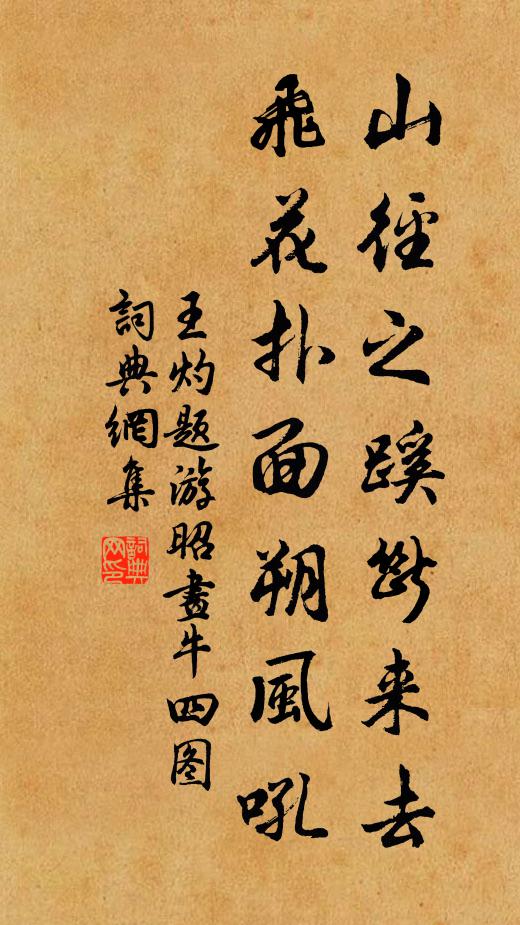 山徑之蹊斷来去
飛花扑面朔風吼
王灼题游昭畫牛四图
詞典網集
詞典网印